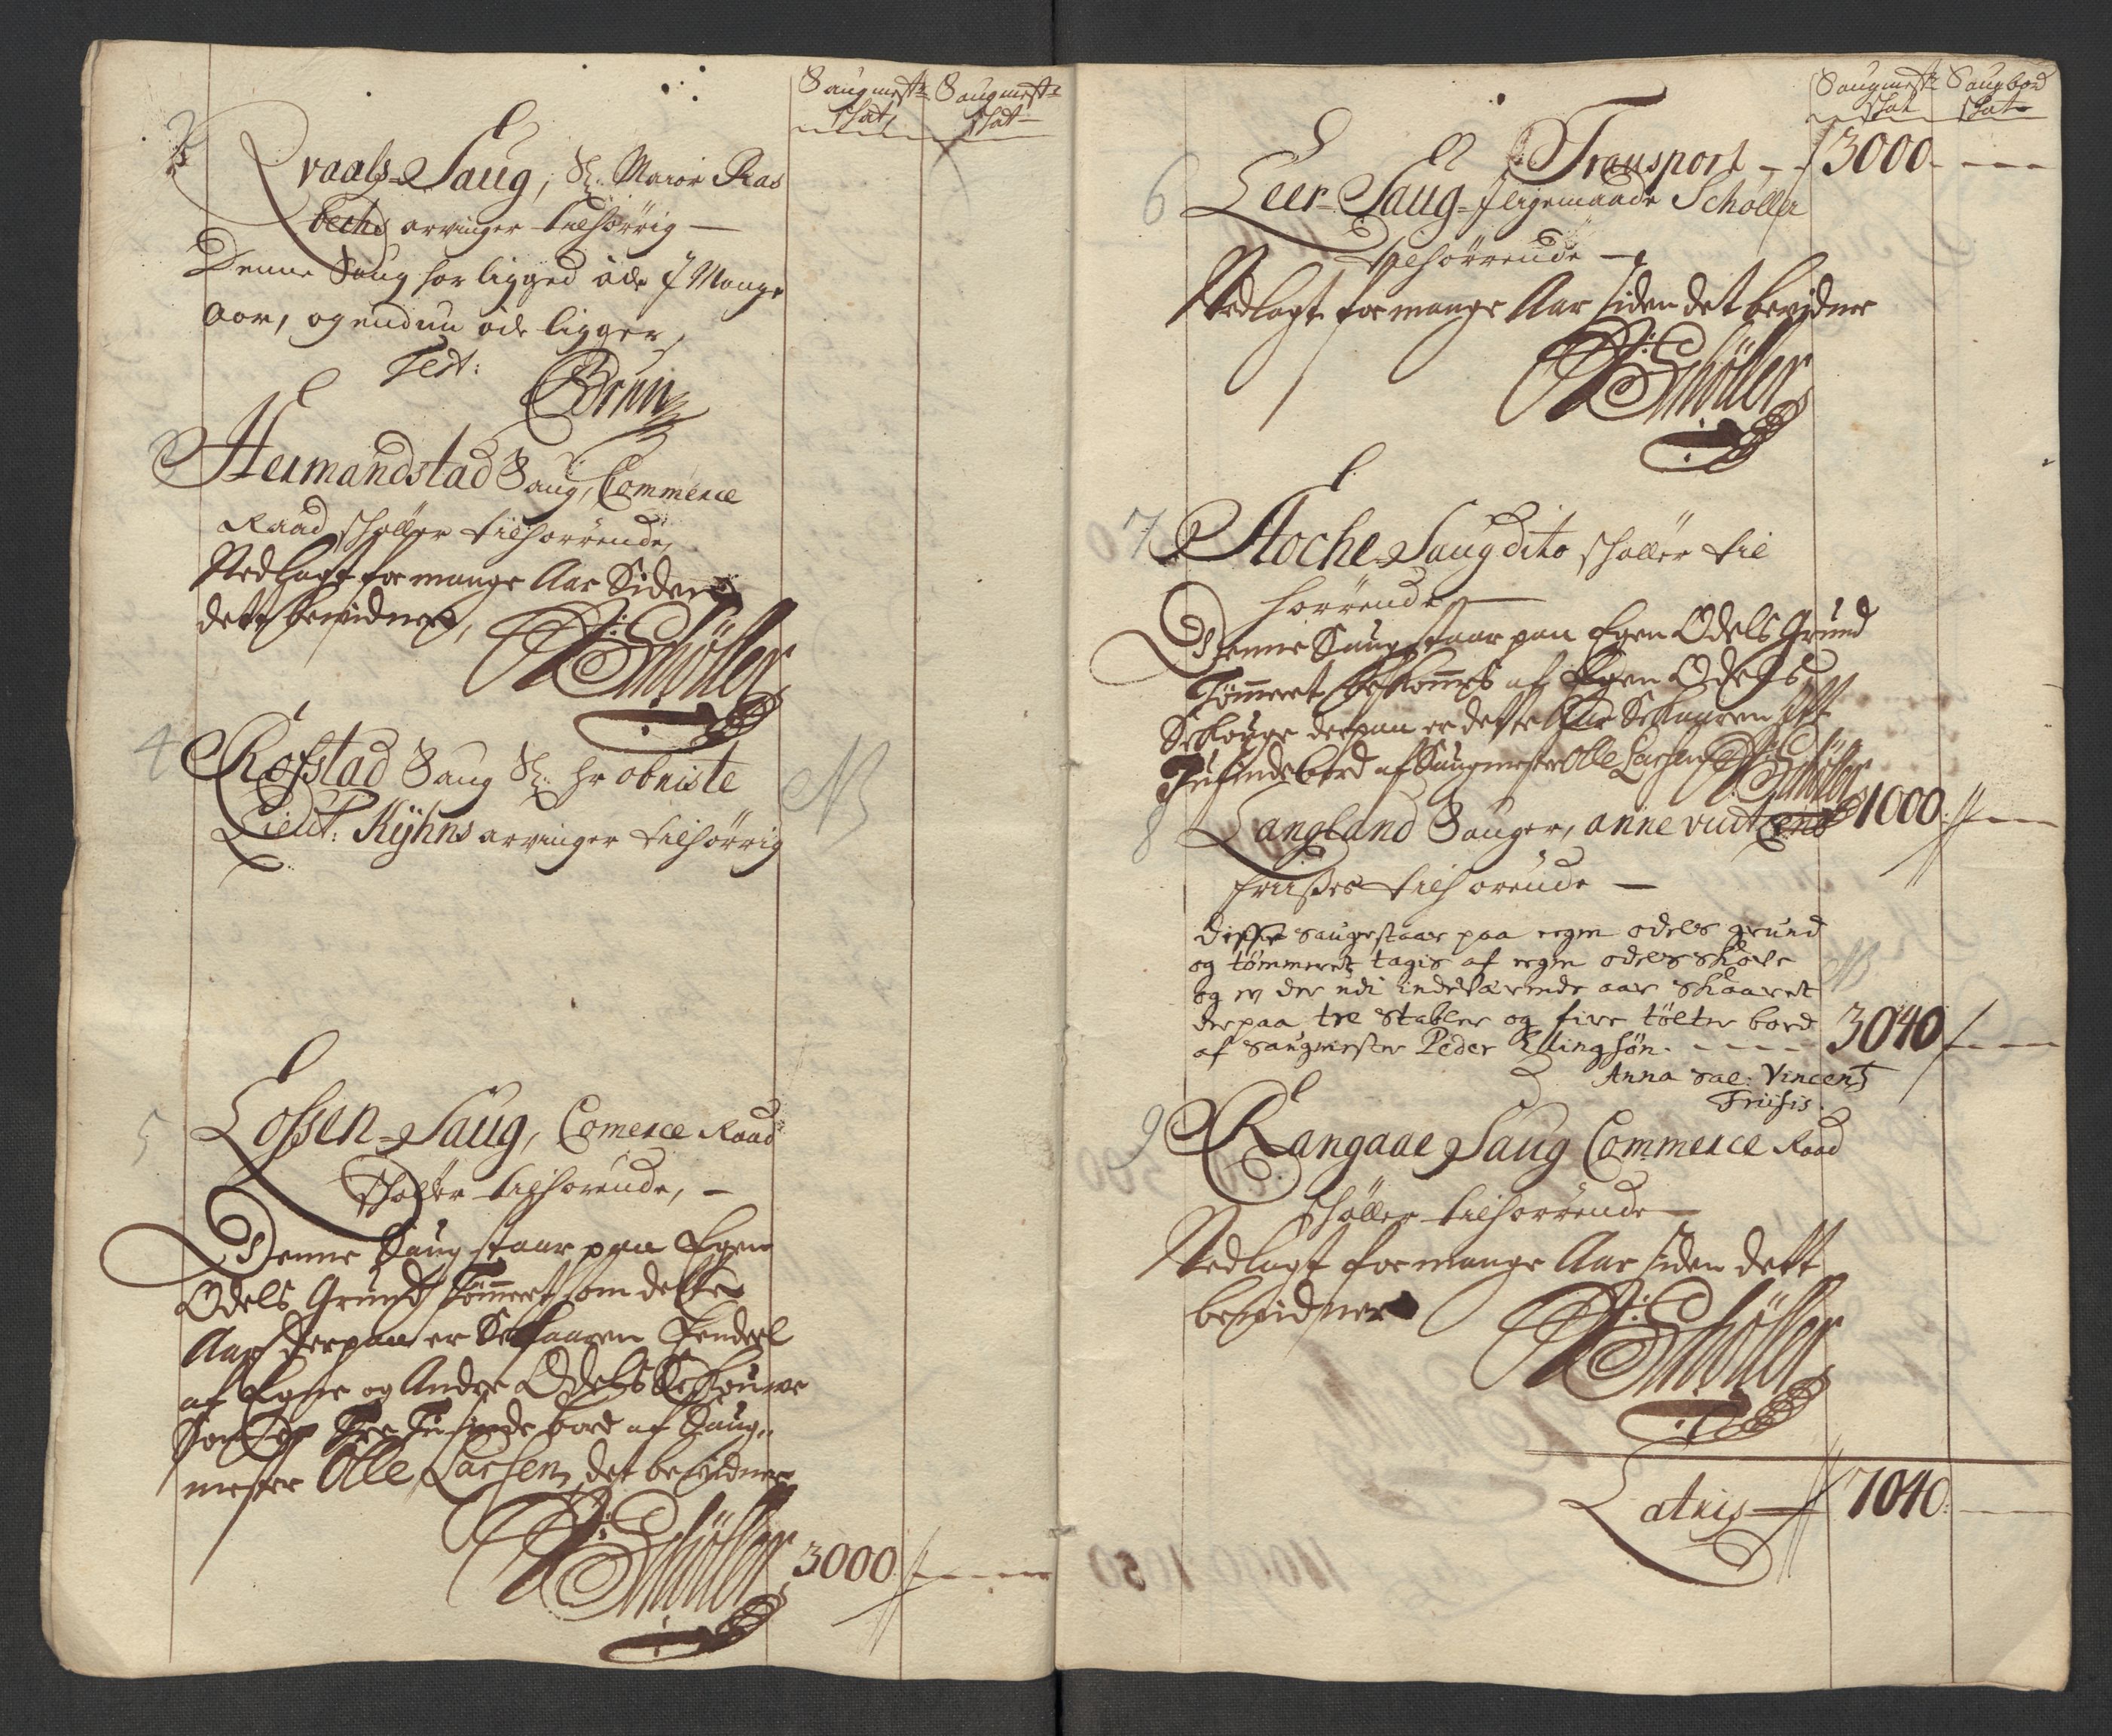 Saugmestr Saugmestr
skat skat
2
Qvaals-Saug, Sl: Maior Ras
bechs arvinger tilhørrig —
Denne Saug har ligged øde J Mange
Aar, og endnu øde ligger,
Test:
3
Hermandstad Saug, Commerce
Raad schøller tilhørrende,
Nedlagt for mange Aar Siden
dette bevidner,
Schøller
4 Rosstad Saug Sl: hr obriste NB
Lieut: Kyhns arvinger tilhørrig
5 Lossen-Saug, Comerce Raad
schøller tilhørende, —
Denne Saug staar paa Egen
Odels Grund Tømmeret som dette
Aar derpaa er Skaaren
af Egne og Andre Odels Skouge
Tre Tusinde bord af Saug-
mester Olle Larsen, det bevidner
Schøller 3000
Saugmestr Saugbord
skat skat
Transport 3000
6 Leer-Saug-Jligemaade Schøller
tilhørrende —
Nedlagt for mange Aar siden det bevidner
Schøller
7 Stoche-Saug dito schøller til
hørrende —
Denne Saug staar paa Egen Odels Grund
Tømmeret bekommes af Egen Odels
Skouge derpaa er dette Aar Skaaren Ett
Tusinde bord af Saugmester Olle Larsen Schøller 1000
8 Langland Sauger, anne vintzens
friises tilhørende —
disse sauge staar paa egen odels grund
og tømmeret tagis af egen odels skove NB
og er der udi indeværende aar skaaret
derpaa tre stabler og fire tølter bord 3040
af saugmester Peder Ellingsøn.
Anna sal: Vincentz
Friisis.
9 Rangaae Saug Commerce Raad
schøller tilhørrende —
Nedlagt for mange Aar siden dett
bevidner
Schøller
Latris 7040